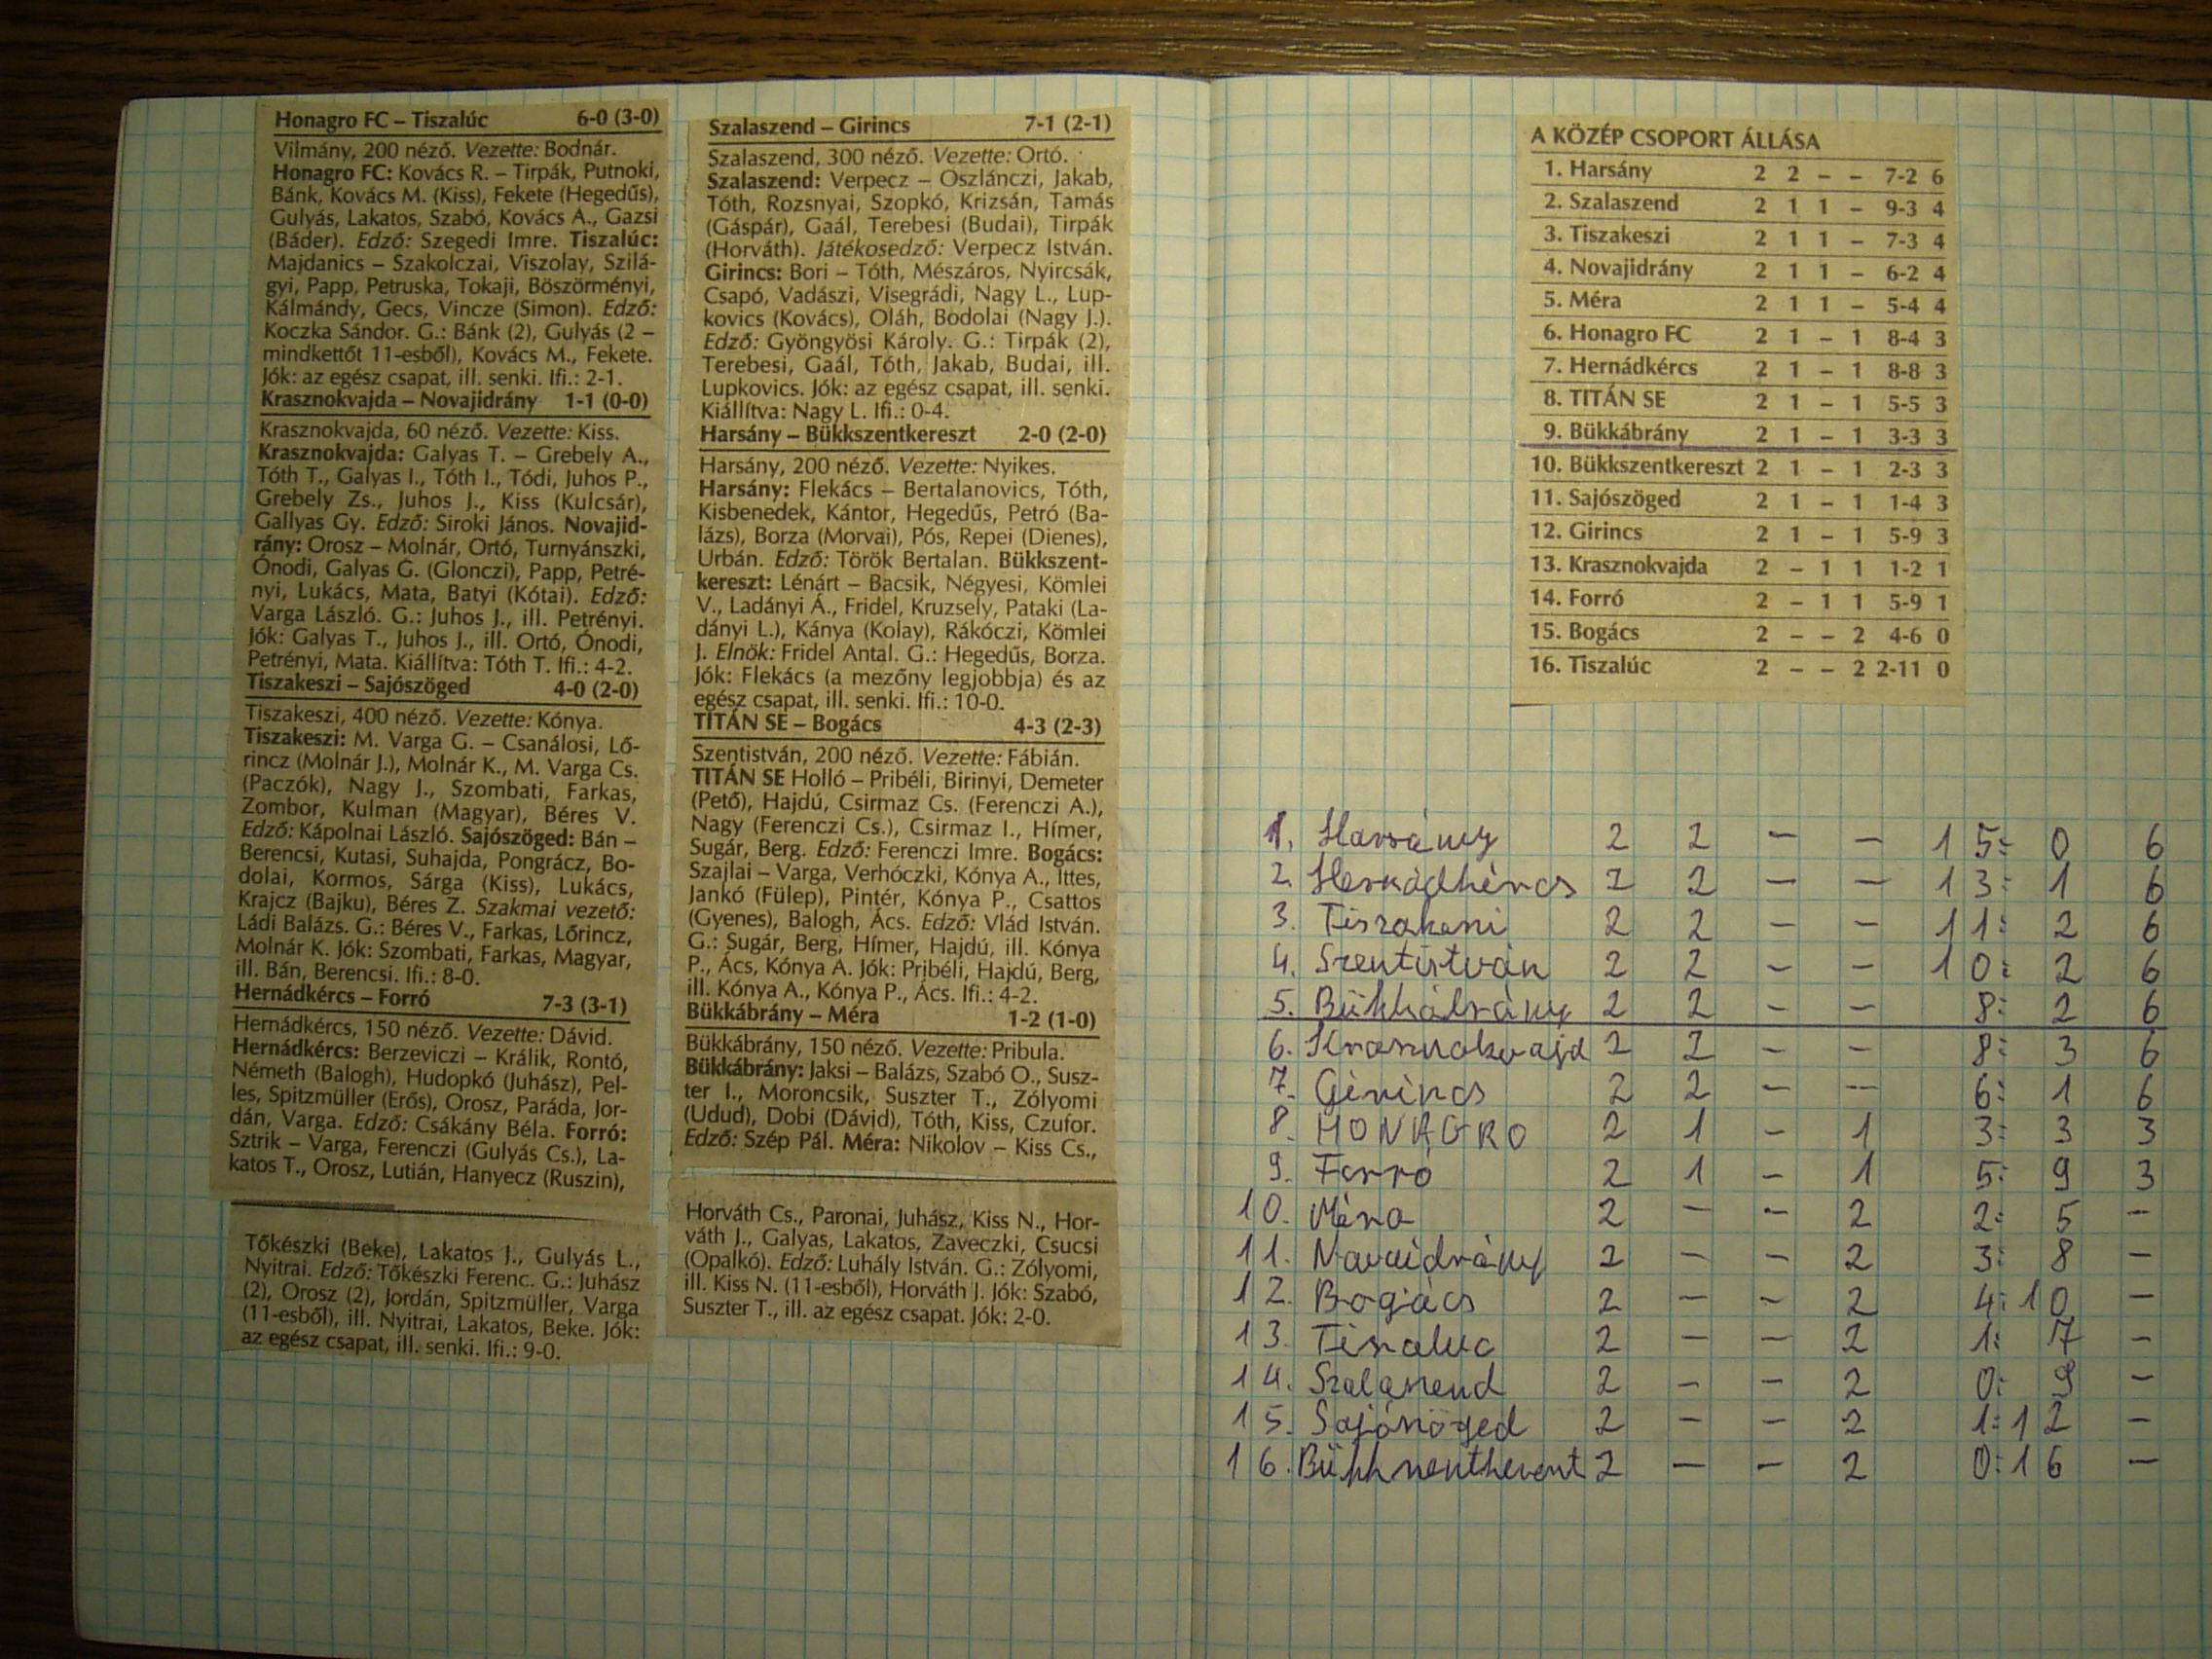 Honagro FC – Tiszalúc 6-0 (3-0)
Vilmány, 200 néző. Vezette: Bodnár.
Honagro FC: Kovács R. – Tirpák, Putnoki,
Bánk, Kovács M. (Kiss), Fekete (Hegedűs),
Gulyás, Lakatos, Szabó, Kovács A., Gazsi
(Báder). Edző: Szegedi Imre. Tiszalúc:
Majdanics – Szakolczai, Viszolay, Szilá-
gyi, Papp, Petruska, Tokaji, Böszörményi,
Kálmándy, Gecs, Vincze (Simon). Edző:
Koczka Sándor. G.: Bánk (2), Gulyás (2 –
mindkettőt 11-esből), Kovács M., Fekete.
Jók: az egész csapat, ill. senki. Ifi.: 2-1.
Krasznokvajda – Novajidrány 1-1 (0-0)
Krasznokvajda, 60 néző. Vezette: Kiss.
Krasznokvajda: Galyas T. – Grebely A.,
Tóth T., Galyas I., Tóth I., Tódi, Juhos P.,
Grebely Zs., Juhos J., Kiss (Kulcsár),
Gallyas Gy. Edző: Siroki János. Novajid-
rány: Orosz – Molnár, Ortó, Turnyánszki,
Ónodi, Galyas G. (Glonczi), Papp, Petré-
nyi, Lukács, Mata, Batyi (Kótai). Edző:
Varga László. G.: Juhos J., ill. Petrényi.
Jók: Galyas T., Juhos J., ill. Ortó, Ónodi,
Petrényi, Mata. Kiállítva: Tóth T. Ifi.: 4-2.
Tiszakeszi – Sajószöged 4-0 (2-0)
Tiszakeszi, 400 néző. Vezette: Kónya.
Tiszakeszi: M. Varga G. – Csanálosi, Lő-
rincz (Molnár J.), Molnár K., M. Varga Cs.
(Paczók), Nagy J., Szombati, Farkas,
Zombor, Kulman (Magyar), Béres V.
Edző: Kápolnai László. Sajószöged: Bán –
Berencsi, Kutasi, Suhajda, Pongrácz, Bo-
dolai, Kormos, Sárga (Kiss), Lukács,
Krajcz (Bajku), Béres Z. Szakmai vezető:
Ládi Balázs. G.: Béres V., Farkas, Lőrincz,
Molnár K. Jók: Szombati, Farkas, Magyar,
ill. Bán, Berencsi. Ifi.: 8-0.
Hernádkércs – Forró 7-3 (3-1)
Hernádkércs, 150 néző. Vezette: Dávid.
Hernádkércs: Berzeviczi – Králik, Rontó,
Németh (Balogh), Hudopkó (Juhász), Pel-
les, Spitzmüller (Erős), Orosz, Paráda, Jor-
dán, Varga. Edző: Csákány Béla. Forró:
Sztrik – Varga, Ferenczi (Gulyás Cs.), La-
katos T., Orosz, Lutián, Hanyecz (Ruszin),
Tőkészki (Beke), Lakatos J., Gulyás L.,
Nyitrai. Edző: Tőkészki Ferenc. G.: Juhász
(2), Orosz (2), Jordán, Spitzmüller, Varga
(11-esből), ill. Nyitrai, Lakatos, Beke. Jók:
az egész csapat, ill. senki. Ifi.: 9-0.
Szalaszend – Girincs 7-1 (2-1)
Szalaszend, 300 néző. Vezette: Ortó.
Szalaszend: Verpecz – Oszlánczi, Jakab,
Tóth, Rozsnyai, Szopkó, Krizsán, Tamás
(Gáspár), Gaál, Terebesi (Budai), Tirpák
(Horváth). Játékosedző: Verpecz István.
Girincs: Bori – Tóth, Mészáros, Nyircsák,
Csapó, Vadászi, Visegrádi, Nagy L., Lup-
kovics (Kovács), Oláh, Bodolai (Nagy J.).
Edző: Gyöngyösi Károly. G.: Tirpák (2),
Terebesi, Gaál, Tóth, Jakab, Budai, ill.
Lupkovics. Jók: az egész csapat, ill. senki.
Kiállítva: Nagy L. Ifi.: 0-4.
Harsány – Bükkszentkereszt 2-0 (2-0)
Harsány, 200 néző. Vezette: Nyikes.
Harsány: Flekács – Bertalanovics, Tóth,
Kisbenedek, Kántor, Hegedűs, Petró (Ba-
lázs), Borza (Morvai), Pós, Repei (Dienes),
Urbán. Edző: Török Bertalan. Bükkszent-
kereszt: Lénárt – Bacsik, Négyesi, Kömlei
V., Ladányi Á., Fridel, Kruzsely, Pataki (La-
dányi L.), Kánya (Kolay), Rákóczi, Kömlei
J. Elnök: Fridel Antal. G.: Hegedűs, Borza.
Jók: Flekács (a mezőny legjobbja) és az
egész csapat, ill. senki. Ifi.: 10-0.
TITÁN SE – Bogács 4-3 (2-3)
Szentistván, 200 néző. Vezette: Fábián.
TITÁN SE Holló – Pribéli, Birinyi, Demeter
(Pető), Hajdú, Csirmaz Cs. (Ferenczi A.),
Nagy (Ferenczi Cs.), Csirmaz I., Hímer,
Sugár, Berg. Edző: Ferenczi Imre. Bogács:
Szajlai – Varga, Verhóczki, Kónya A., Ittes,
Jankó (Fülep), Pintér, Kónya P., Csattos
(Gyenes), Balogh, Ács. Edző: Vlád István.
G.: Sugár, Berg, Hímer, Hajdú, ill. Kónya
P., Ács, Kónya A. Jók: Pribéli, Hajdú, Berg,
ill. Kónya A., Kónya P., Ács. Ifi.: 4-2.
Bükkábrány – Méra 1-2 (1-0)
Bükkábrány, 150 néző. Vezette: Pribula.
Bükkábrány: Jaksi – Balázs, Szabó O., Susz-
ter I., Moroncsik, Suszter T., Zólyomi
(Udud), Dobi (Dávid), Tóth, Kiss, Czufor.
Edző: Szép Pál. Méra: Nikolov – Kiss Cs.,
Horváth Cs., Paronai, Juhász, Kiss N., Hor-
váth J., Galyas, Lakatos, Zaveczki, Csucsi
(Opalkó). Edző: Luhály István. G.: Zólyomi,
ill. Kiss N. (11-esből), Horváth J. Jók: Szabó,
Suszter T., ill. az egész csapat. Jók: 2-0.
A KÖZÉP CSOPORT ÁLLÁSA
1. Harsány 2 2 – – 7-2 6
2. Szalaszend 2 1 1 – 9-3 4
3. Tiszakeszi 2 1 1 – 7-3 4
4. Novajidrány 2 1 1 – 6-2 4
5. Méra 2 1 1 – 5-4 4
6. Honagro FC 2 1 – 1 8-4 3
7. Hernádkércs 2 1 – 1 8-8 3
8. TITÁN SE 2 1 – 1 5-5 3
9. Bükkábrány 2 1 – 1 3-3 3
10. Bükkszentkereszt 2 1 – 1 2-3 3
11. Sajószöged 2 1 – 1 1-4 3
12. Girincs 2 1 – 1 5-9 3
13. Krasznokvajda 2 – 1 1 1-2 1
14. Forró 2 – 1 1 5-9 1
15. Bogács 2 – – 2 4-6 0
16. Tiszalúc 2 – – 2 2-11 0
1. Harsány 2 2 – – 15: 0 6
2. Hernádkércs 2 2 – – 13: 1 6
3. Tiszakeszi 2 2 – – 11: 2 6
4. Szentistván 2 2 – – 10: 2 6
5. Bükkábrány 2 2 – – 8: 2 6
6. Krasznokvajd 2 2 – – 8: 3 6
7. Girincs 2 2 – – 6: 1 6
8. HONAGRO 2 1 – 1 3: 3 3
9. Forró 2 1 – 1 5: 9 3
10. Méra 2 – – 2 2: 5 –
11. Novaidrány 2 – – 2 3: 8 –
12. Bogács 2 – – 2 4: 10 –
13. Tiszaluc 2 – – 2 1: 7 –
14. Szalaszend 2 – – 2 0: 9 –
15. Sajószöged 2 – – 2 1: 12 –
16. Bükkszentkereszt 2 – – 2 0: 16 –